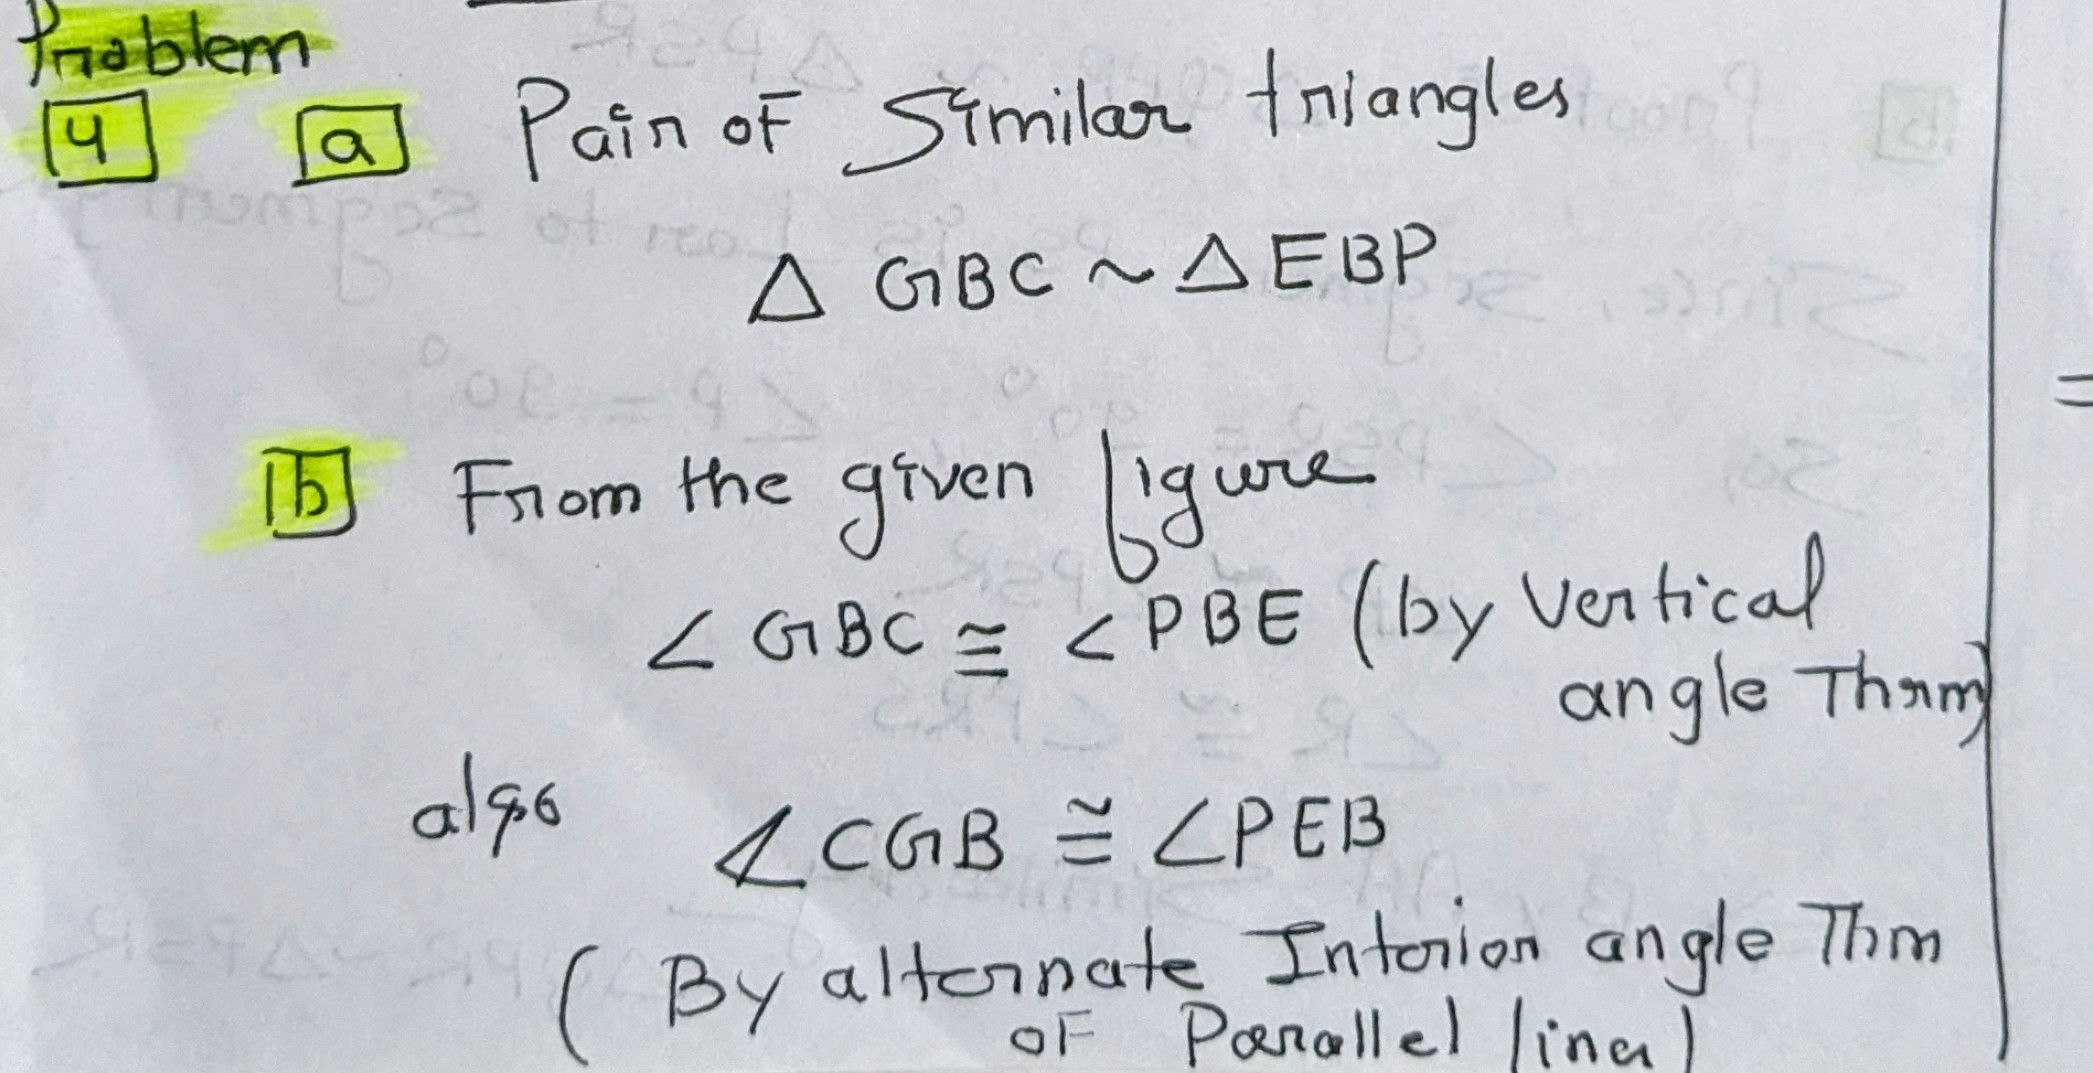 Problem
4 a Pair of Similar triangles
△ GBC ~ △ EBP
b From the given figure
∠ GBC ≅ ∠ PBE (by Vertical
angle Thrm)
also ∠CGB ≅ ∠PEB
( By alternate Interior angle Thm
OF Parallel lines)
=